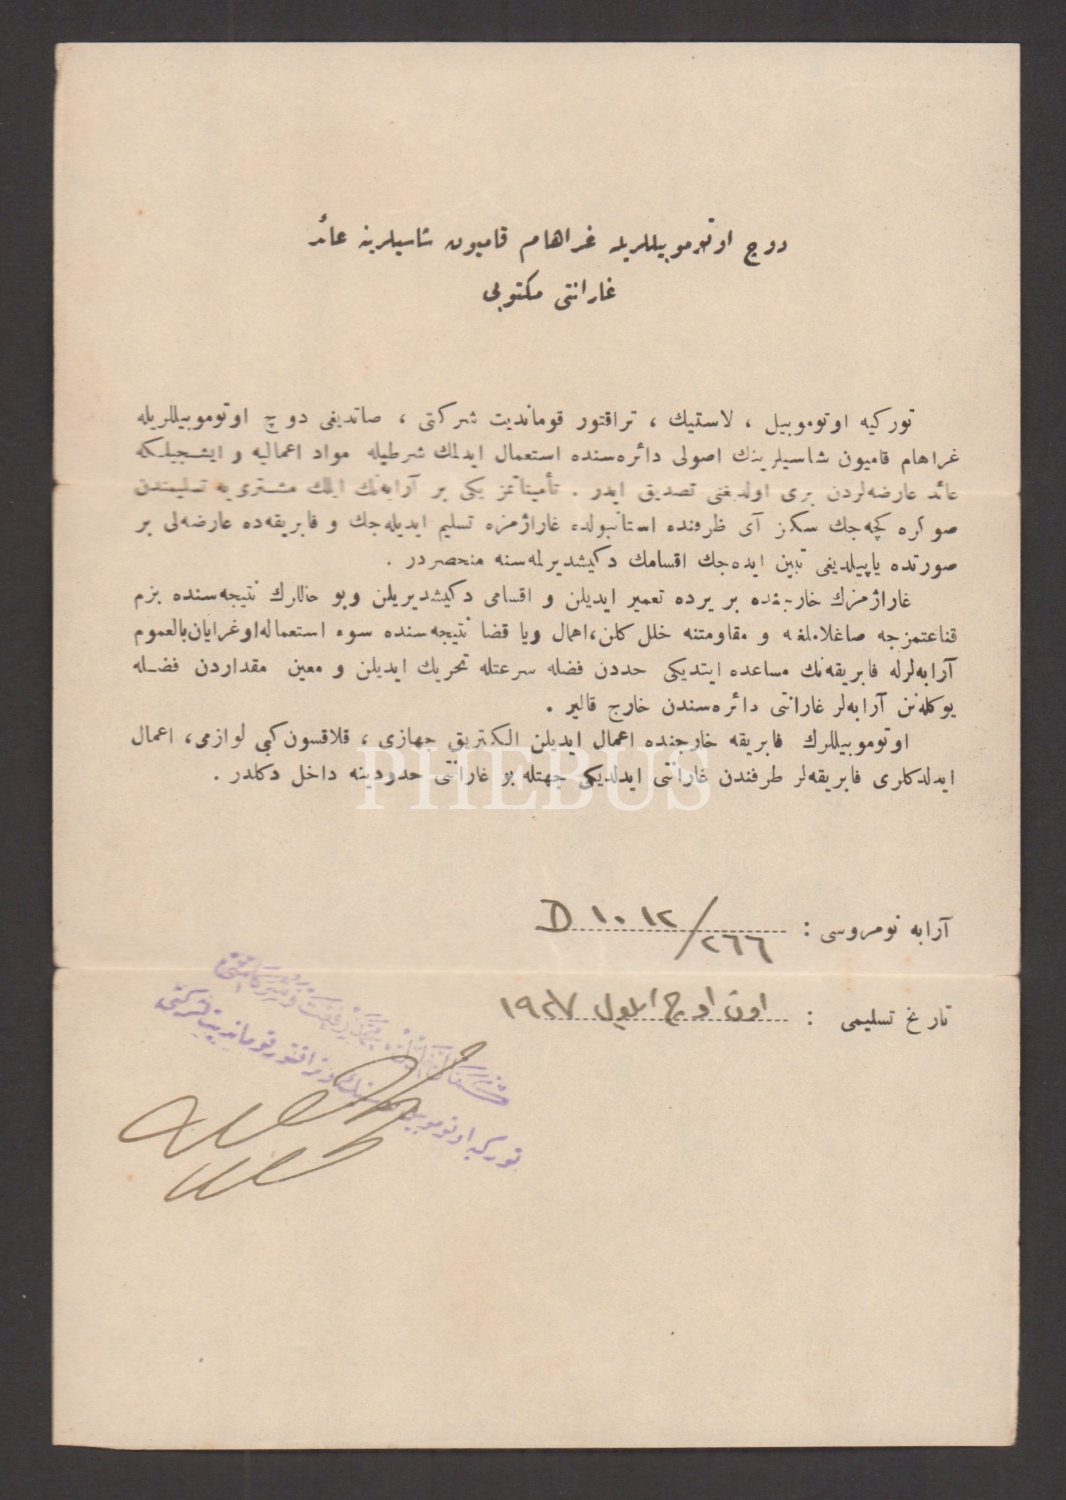 دوج اوتوموبیللریله غراهام قامیون شاسیلرینه عائد
غارانتی مکتوبی
تورکیه اوتوموبیل ، لاستیك ، تراقتور قوماندیت شرکتی ، صاتدیغی دوج اوتوموبیللریله
غراهام قامیون شاسیلرینك اصولی دائره‌سنده استعمال ایدلمك شرطیله مواد اعمالیه و ایشجیلکه
عائد عارضه‌لردن بری اولدیغنی تصدیق ایدر . تأمیناتمز یکی بر آرابه‌نك ایلك مشتری‌یه تسلیمندن
صوکره کچه‌جك سکز آی ظرفنده استانبولده غاراژمزه تسلیم ایدیله‌جك و فابریقه‌ده عارضه‌لی بر
صورتده یاپیلدیغی تبین ایده‌جك اقسامك دکیشدیرلمه‌سنه منحصردر .
غاراژمزك خارجنده بر یرده تعمیر ایدیلن و اقسامی دکیشدیریلن وبو حاللرك نتیجه‌سنده بزم
قناعتمزجه صاغلاملغه و مقاومتنه خلل کلن،اهمال ویا قضا نتیجه‌سنده سوء استعماله‌اوغرایان‌بالعموم
آرابه‌لرله فابریقه‌نك مساعده ایتدیکی حددن فضله سرعتله تحریك ایدیلن و معین مقداردن فضله
یوکله‌نن آرابه‌لر غارانتی دائره‌سندن خارج قالیر .
اوتوموبیللرك فابریقه خارجنده اعمال ایدیلن الکتریق جهازی ، قلاقسون کبی لوازمی، اعمال
ایدلدکلری فابریقه‌لر طرفندن غارانتی ایدلدیکی جهتله بو غارانتی حدودینه داخل دکلدر .
PHEBUS
آرابه نومروسی : D ١٠١٢/٢٦٦
تاریخ تسلیمی : اون اوج ایلول ١٩٢٧
تورکیه اوتوموبیل لاستیك و تراقتور قوماندیت شرکتی